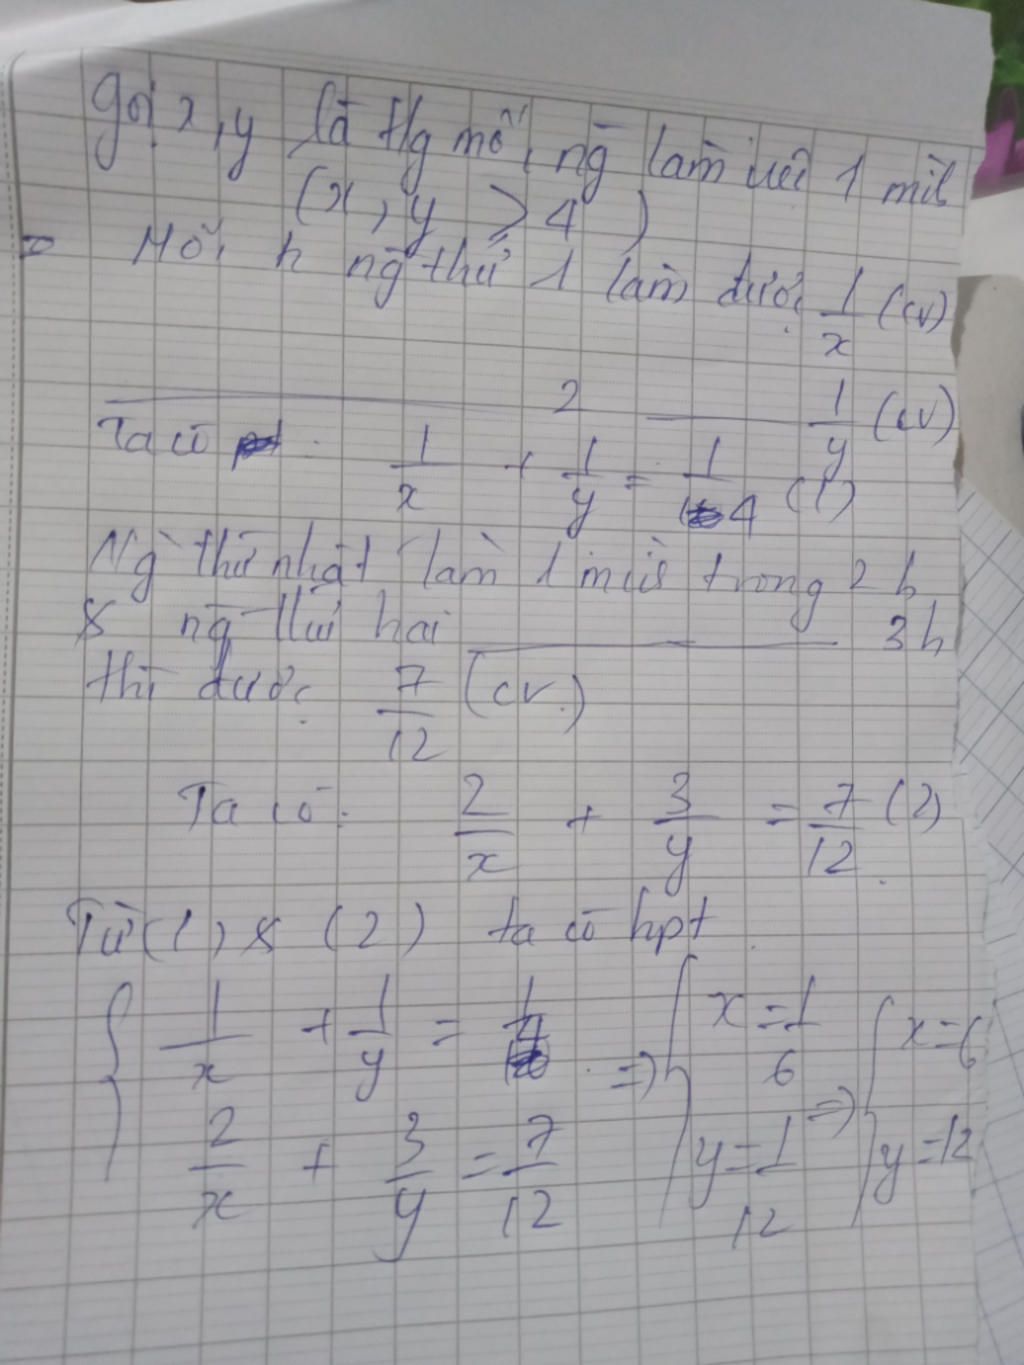 Gọi x, y là tg mỗi ng làm việc 1 mìk
(x, y ⩾ 4)
=> Mỗi h ng thứ 1 làm được 1/x (cv)
2 1/y (cv)
Ta có : 1/x + 1/y = 1/4 (1)
Ng thứ nhất làm 1 mìk trong 2 h
& ng thứ hai 3 h
thì được 7/12 (cv)
Ta có: 2/x + 3/y = 7/12 (2)
Từ (1) & (2) ta có hpt
{ 1/x + 1/y = 1/4 => { x = 1/6 => { x = 6
2/x + 3/y = 7/12 y = 1/12 y = 12